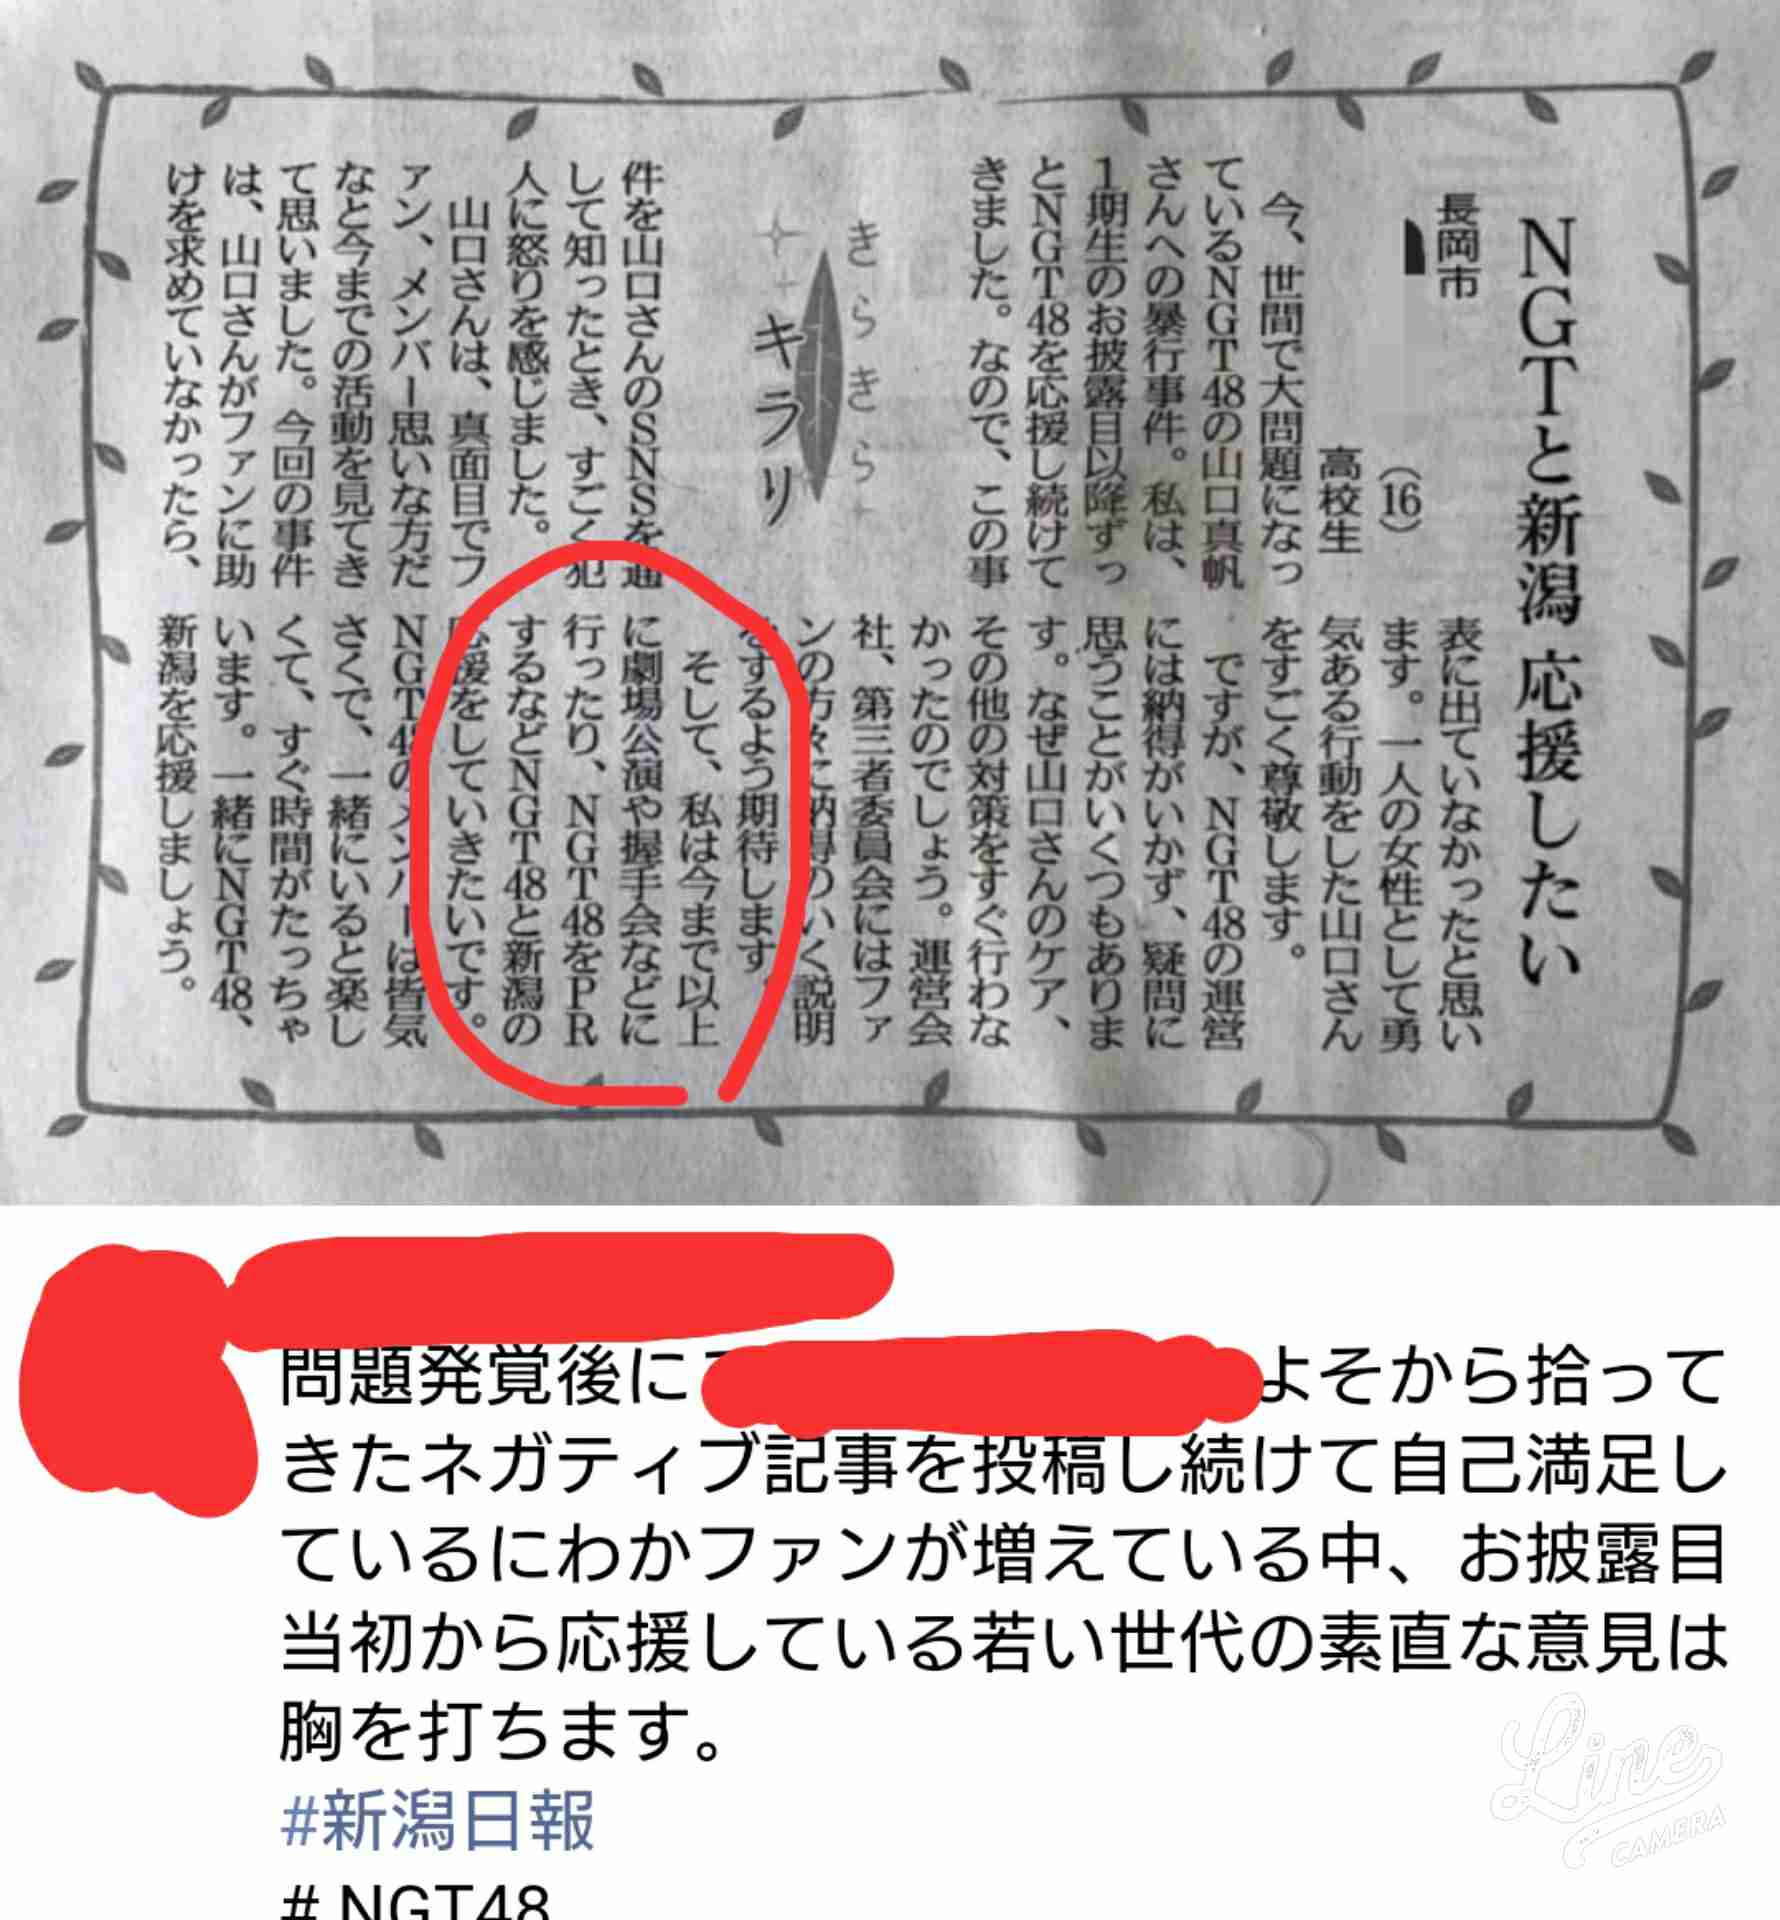 NGTと新潟 応援したい
長岡市
(16)
高校生
今、世間で大問題になっ
ているNGT48の山口真帆
さんへの暴行事件。私は、
1期生のお披露目以降ずっ
とNGT48を応援し続けて
きました。なので、この事
きらきら
キラリ
件を山口さんのSNSを通
して知ったとき、すごく犯
人に怒りを感じました。
山口さんは、真面目でフ
ァン、メンバー思いな方だ
なと今までの活動を見てき
て思いました。今回の事件
は、山口さんがファンに助
けを求めていなかったら、
表に出ていなかったと思い
ます。一人の女性として勇
気ある行動をした山口さん
をすごく尊敬します。
ですが、NGT48の運営
には納得がいかず、疑問に
思うことがいくつもありま
す。なぜ山口さんのケア、
その他の対策をすぐ行わな
かったのでしょう。運営会
社、第三者委員会にはファ
ンの方々に納得のいく説明
をするよう期待します。
そして、私は今まで以上
に劇場公演や握手会などに
行ったり、NGT48をPR
するなどNGT48と新潟の
応援をしていきたいです。
NGT48のメンバーは皆気
さくで、一緒にいると楽し
くて、すぐ時間がたっちゃ
います。一緒にNGT48、
新潟を応援しましょう。
問題発覚後に
よそから拾って
きたネガティブ記事を投稿し続けて自己満足し
ているにわかファンが増えている中、お披露目
当初から応援している若い世代の素直な意見は
胸を打ちます。
#新潟日報
# NGT48
Line
CAMERA